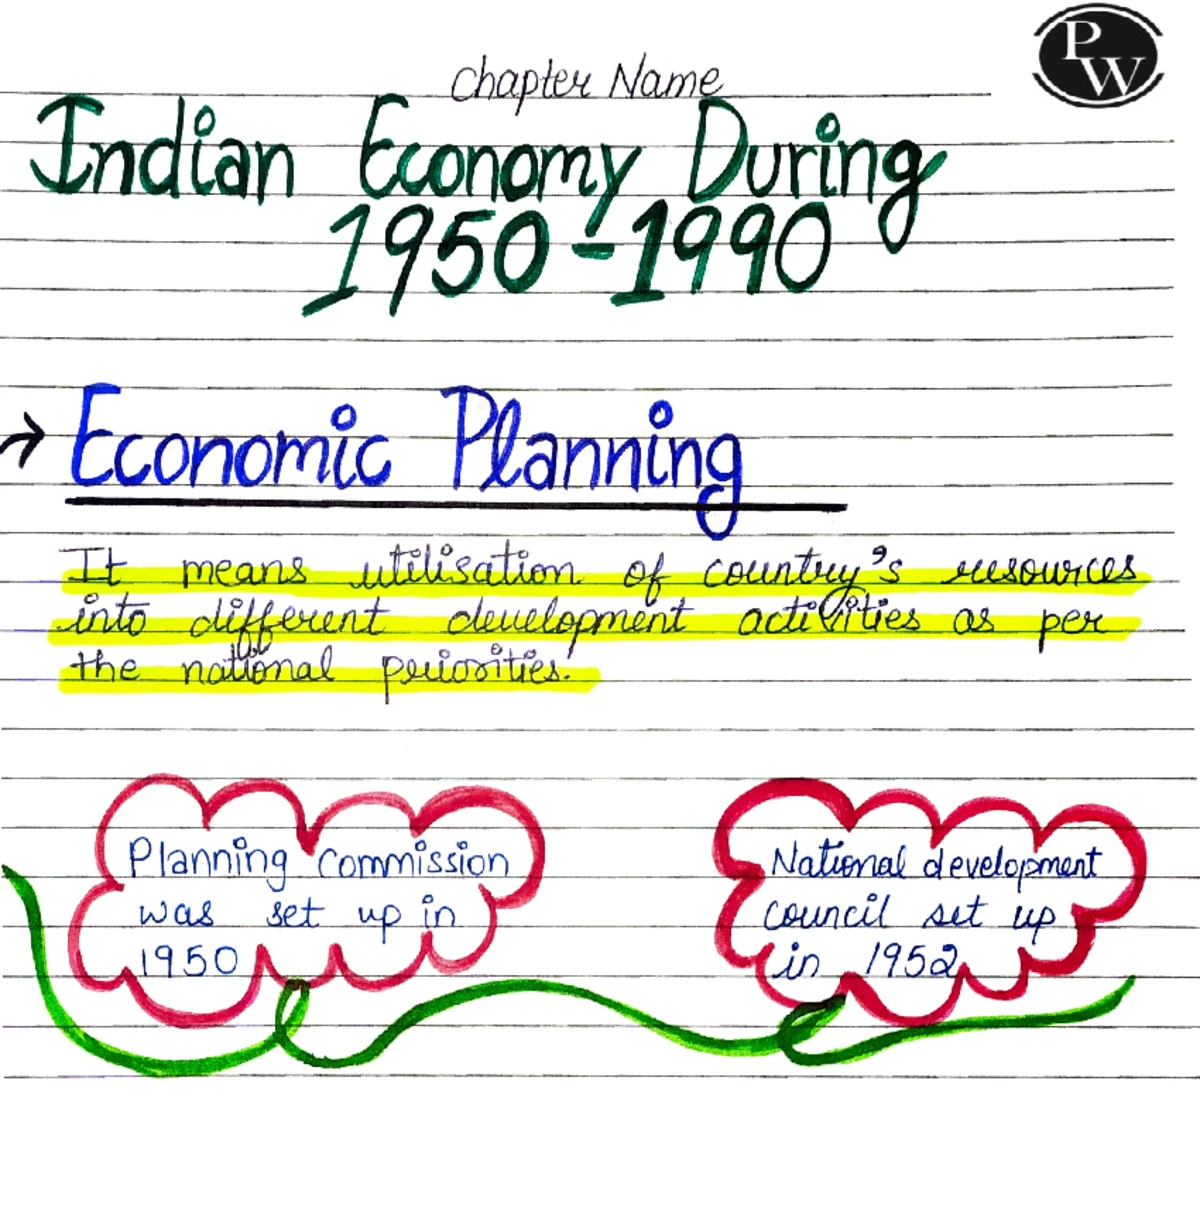 PW
Chapter Name
Indian Economy During
1950-1990
→ Economic Planning
It means utilisation of country's resources
into different development activities as per
the national priorities.
Planning Commission
was set up in
1950
National development
council set up
in 1952